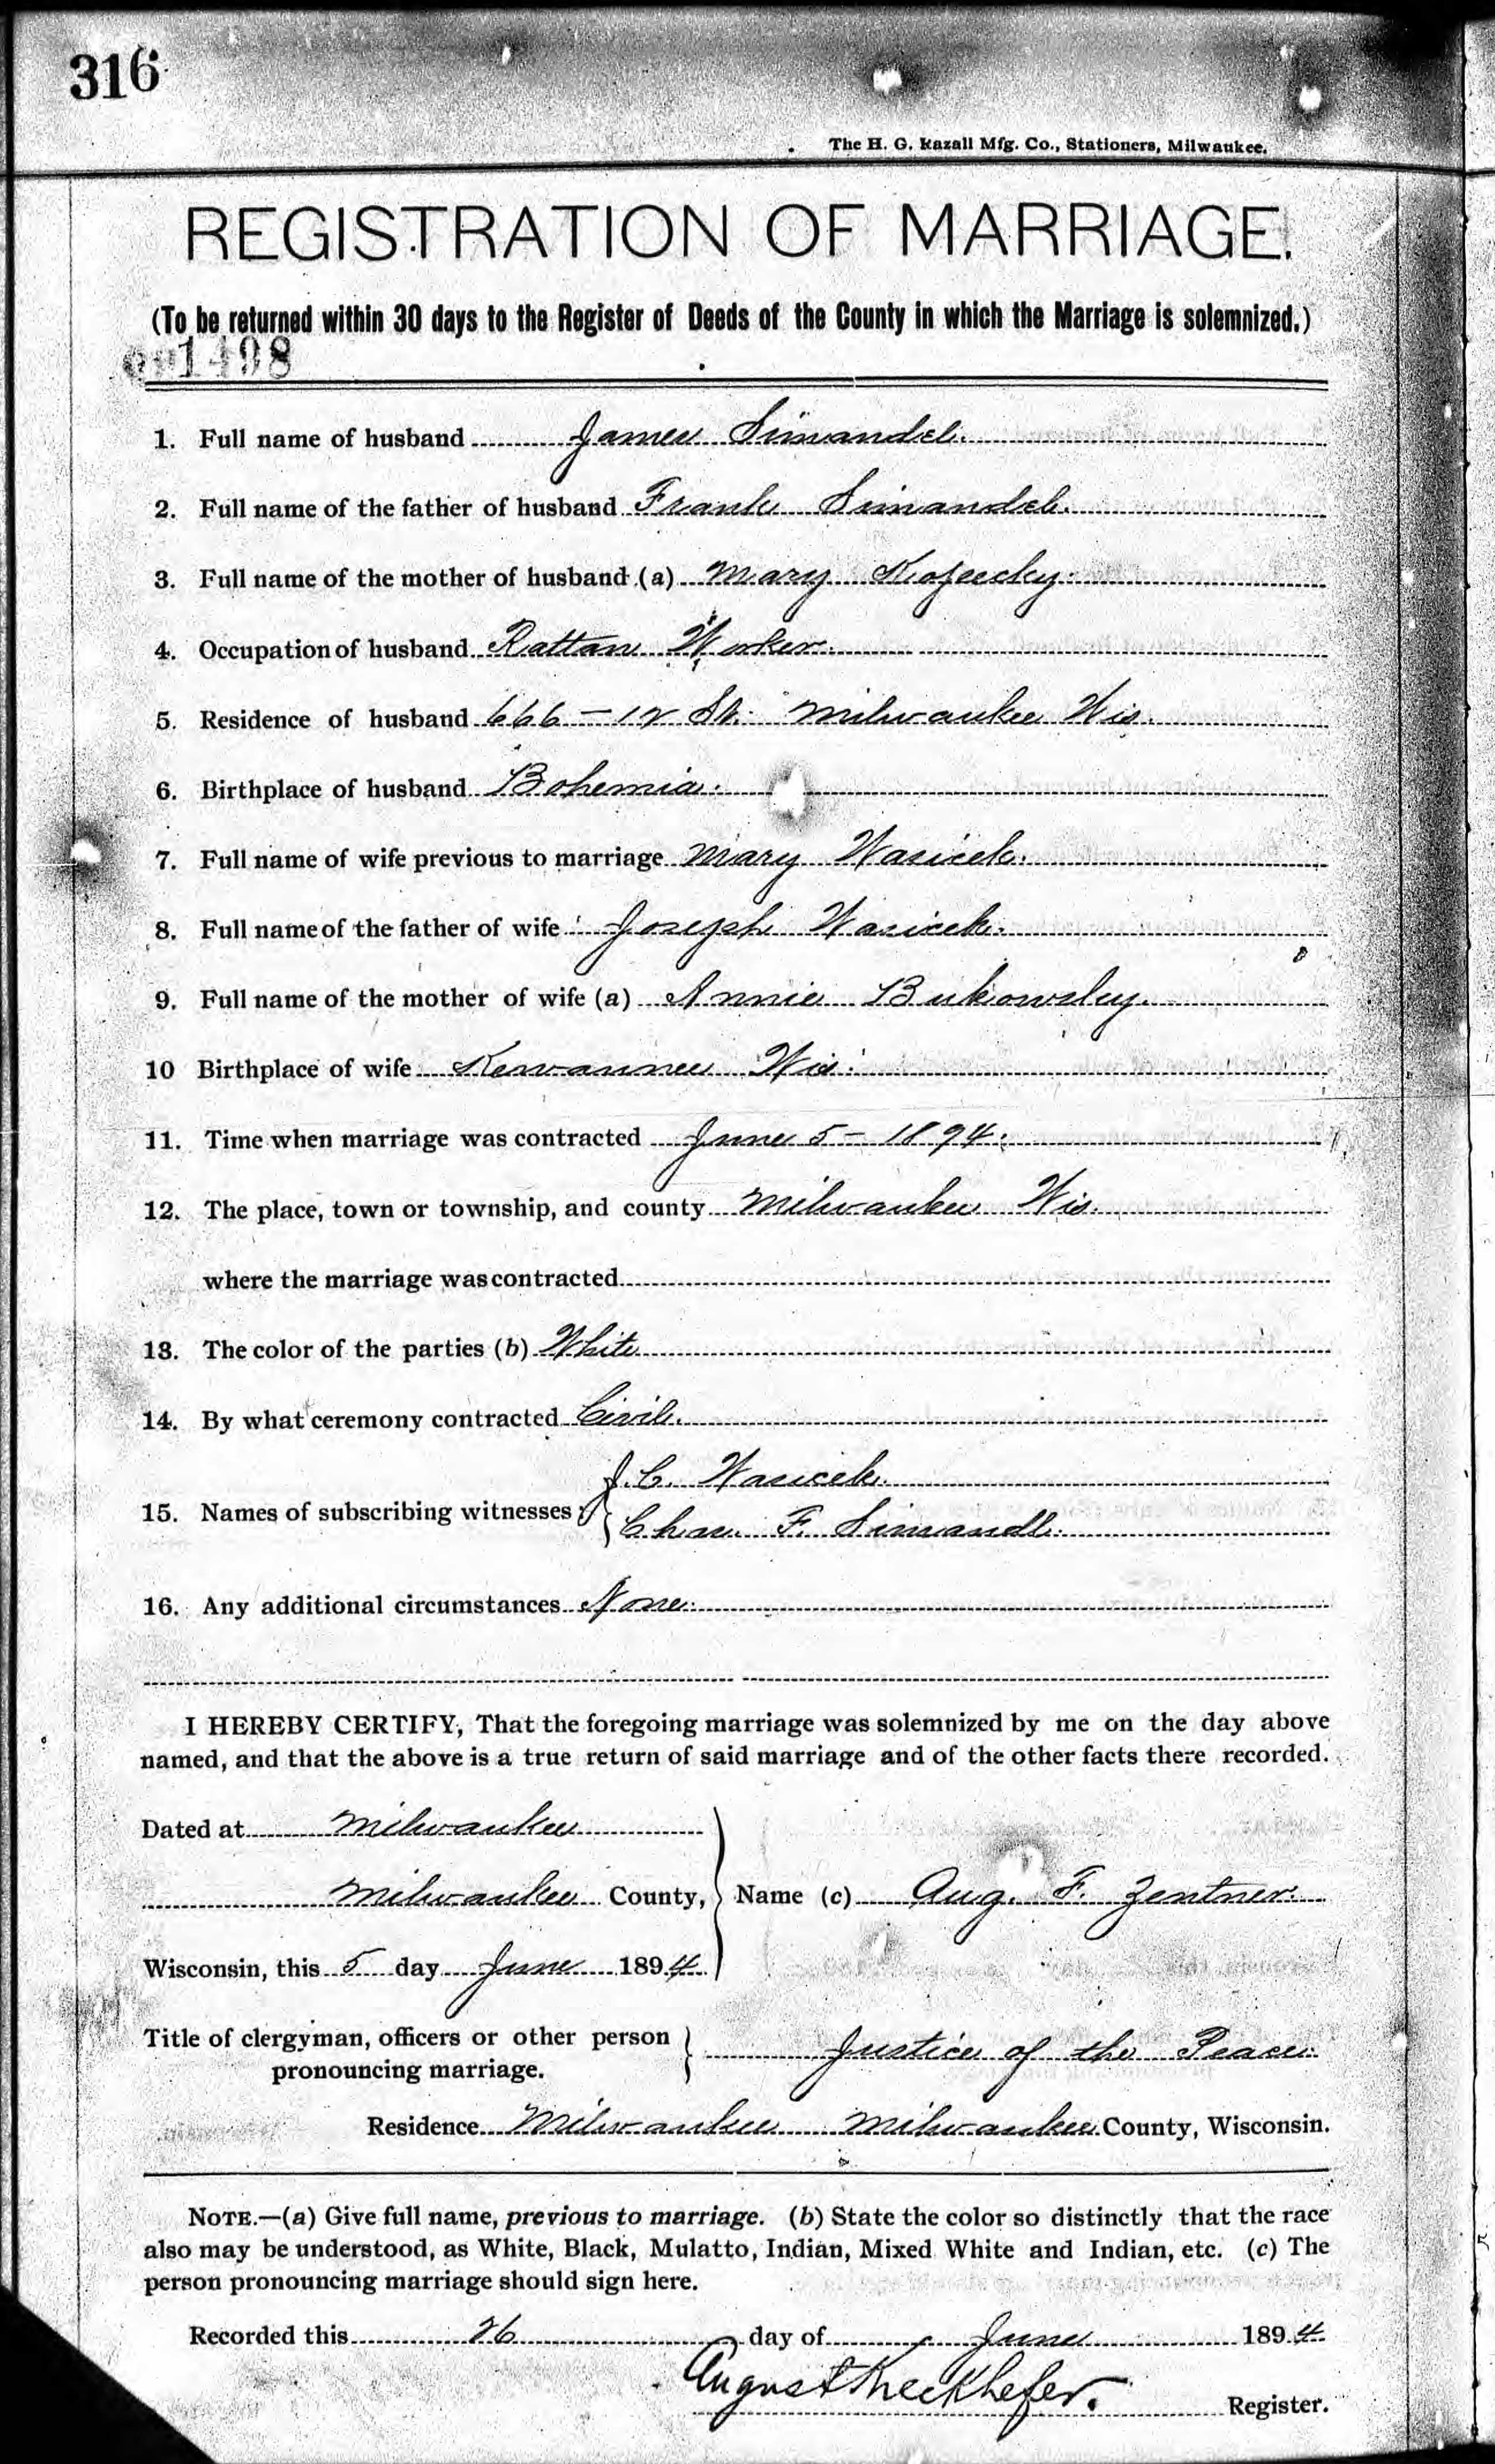 316
The H. G. Razall Mfg. Co., Stationers, Milwaukee.
REGISTRATION OF MARRIAGE.
(To be returned within 30 days to the Register of Deeds of the County in which the Marriage is solemnized.)
1498
1. Full name of husband James Simandel.
2. Full name of the father of husband Frank Simandel.
3. Full name of the mother of husband (a) Mary
4. Occupation of husband Rattan Worker.
5. Residence of husband 666 - 12 St. Milwaukee Wis.
6. Birthplace of husband Bohemia.
7. Full name of wife previous to marriage Mary Wasicek.
8. Full name of the father of wife Joseph Wasicek.
9. Full name of the mother of wife (a) Annie Bukowsky.
10 Birthplace of wife Kewaunee Wis.
11. Time when marriage was contracted June 5 - 1894.
12. The place, town or township, and county Milwaukee Wis.
where the marriage was contracted
13. The color of the parties (b) White
14. By what ceremony contracted Civil.
J. C. Wasicek.
15. Names of subscribing witnesses
Chas. F. Simandl.
16. Any additional circumstances None.
I HEREBY CERTIFY, That the foregoing marriage was solemnized by me on the day above
named, and that the above is a true return of said marriage and of the other facts there recorded.
Dated at Milwaukee
Milwaukee County, Name (c) Aug. F. Zentner.
Wisconsin, this 5 day June 1894.
Title of clergyman, officers or other person
pronouncing marriage. Justice of the Peace.
Residence Milwaukee Milwaukee County, Wisconsin.
NOTE.—(a) Give full name, previous to marriage. (b) State the color so distinctly that the race
also may be understood, as White, Black, Mulatto, Indian, Mixed White and Indian, etc. (c) The
person pronouncing marriage should sign here.
Recorded this 26 day of June 1894.
August Kieckhefer. Register.